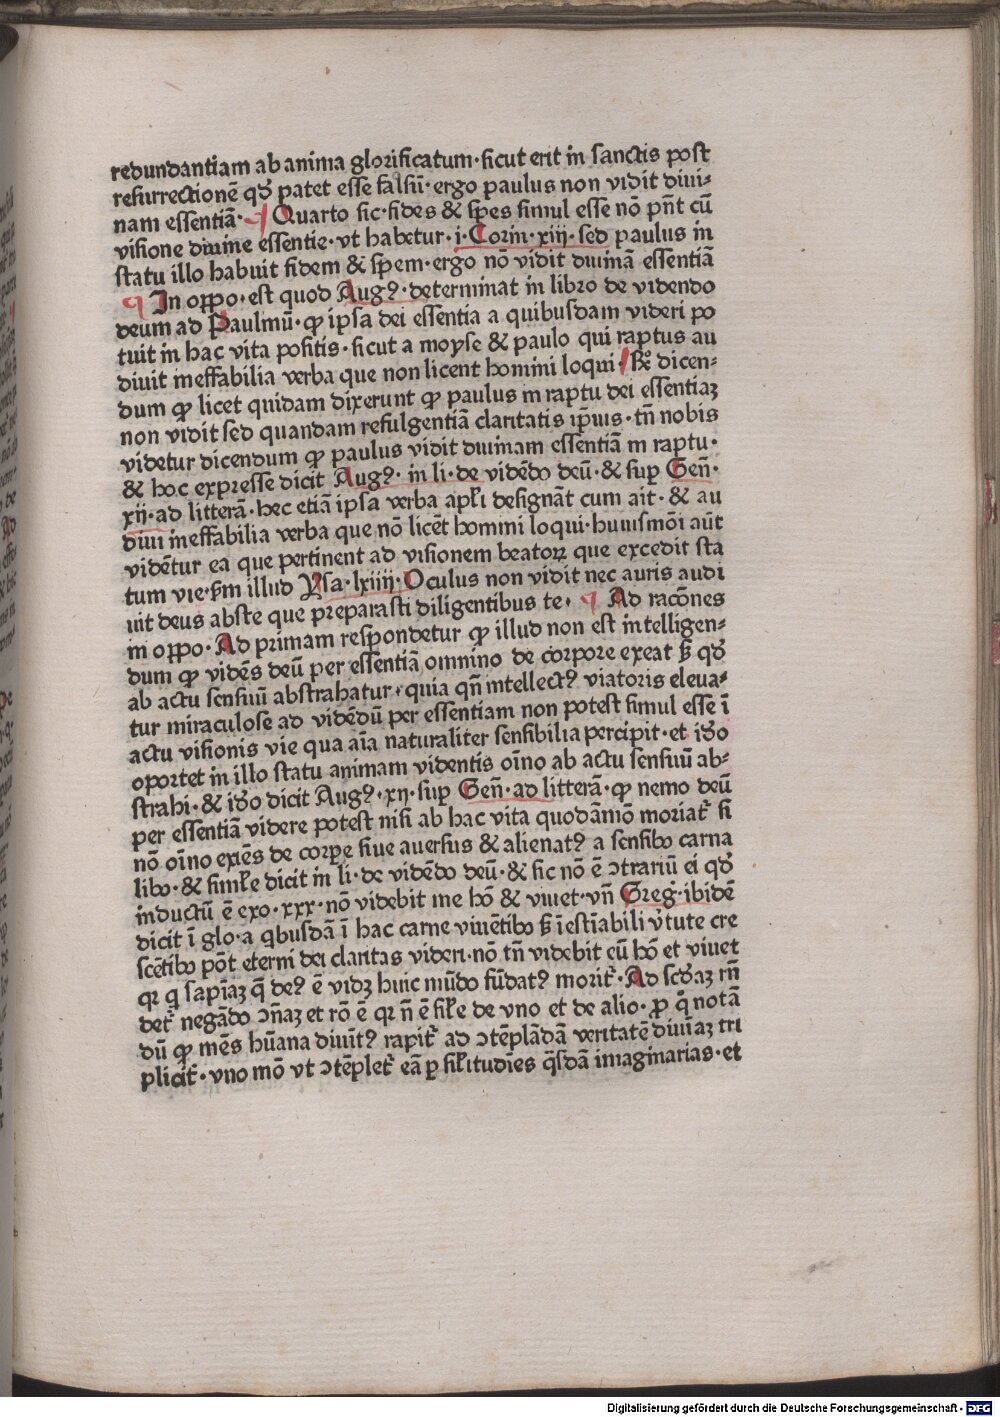 redundantiam ab anima glorificatum·sicut erit in sanctis post
resurrectionē qđ patet esse falsū·ergo paulus non vidit diui-
nam essentiā·¶ Quarto sic·fides & spes simul esse nō pn̄t cū
visione diuine essentie·vt habetur·i·Corin·xiij·sed paulus in
statu illo habuit fidem & spem·ergo nō vidit diuinā essentiā
¶ In oppo·est quod Augꝰ·determinat in libro de videndo
deum ad Paulinū·ꝙ ipsa dei essentia a quibusdam videri po
tuit in hac vita positis·sicut a moyse & paulo qui raptus au
diuit ineffabilia verba que non licent homini loqui·℟ dicen-
dum ꝙ licet quidam dixerunt ꝙ paulus in raptu dei essentiaꝫ
non vidit sed quandam refulgentiā claritatis ip̄ius·tn̄ nobis
videtur dicendum ꝙ paulus vidit diuinam essentiā in raptu·
& hoc expresse dicit Augꝰ·in li·de vidēdo deū·& sup Gen̄·
xij·ad litterā·hec etiā ipsa verba apłi designāt cum ait·& au
diui ineffabilia verba que nō licēt homini loqui·huiusmōi aūt
vidētur ea que pertinent ad visionem beatoꝝ que excedit sta
tum vie·ẜm illud Ysa·lxiiij·Oculus non vidit nec auris audi
uit deus abste que preparasti diligentibus te· ¶ Ad racōnes
in oppo·Ad primam respondetur ꝙ illud non est intelligen-
dum ꝙ vidēs deū per essentiā omnino de corpore exeat ẜ qđ
ab actu sensuū abstrahatur·quia qn̄ intellectꝰ viatoris eleua-
tur miraculose ad vidēdū per essentiam non potest simul esse ī
actu visionis vie qua aīa naturaliter sensibilia percipit·et iđo
oportet in illo statu animam videntis oīno ab actu sensuū ab-
strahi·& iđo dicit Augꝰ·xij·sup Gen̄·ad litterā·ꝙ nemo deū
per essentiā videre potest nisi ab hac vita quodāmō moriat̉ si
nō oīno exiēs de corpe siue auersus & alienatꝰ a sensibꝰ carna
libꝰ·& simiłe dicit in li·de vidēdo deū·& sic nō ē ꝯtrariū ei qđ
inductū ē exo·xxx·nō videbit me hō & viuet·vn̄ Greg̉·ibidē
dicit ī glo·a qbusdā ī hac carne viuētibꝰ ẜ īestīabili v̉tute cre
scētibꝰ pōt eterni dei claritas videri·nō tn̄ videbit eū hō et viuet
qꝛ q sapīaꝫ q̄ deꝰ ē vidꝫ huic mūdo fūdatꝰ morit̉·Ad scđaꝫ rn̄
det̉ negādo ꝯn̄aꝫ et rō ē qꝛ n̄ ē siłe de vno et de alio·ꝓ q̊ notā
dū ꝙ mēs hūana diuit̉ꝰ rapit̉ ad ꝯtēplādā veritatē diuīaꝫ tri
plicit̉·vno mō vt ꝯtēplet̉ eā ꝑ siłitudīes q̄sdā imaginarias·et
Digitalisierung gefördert durch die Deutsche Forschungsgemeinschaft - DFG